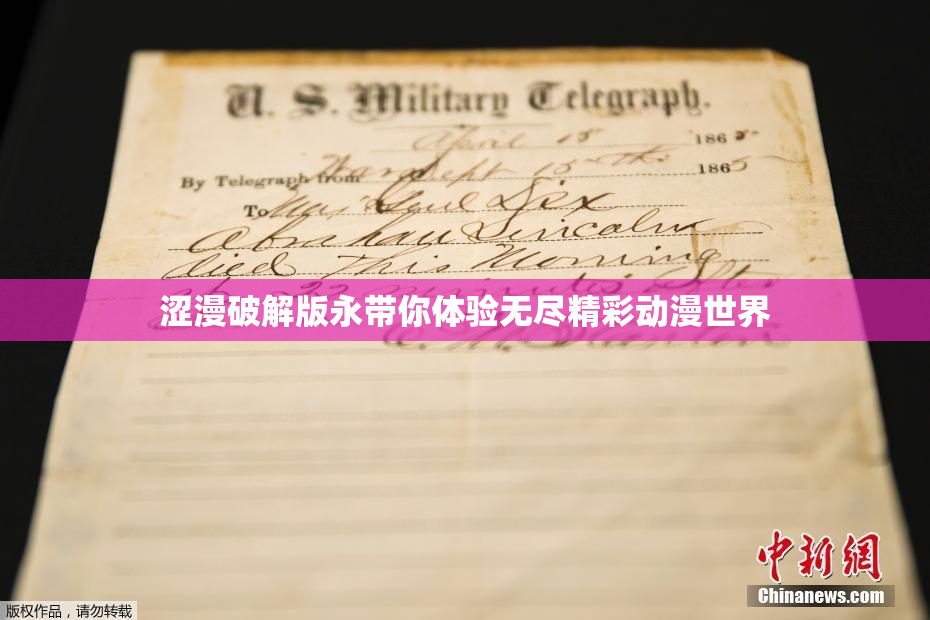 U. S. Military Telegraph.
April 15 1865
By Telegraph from War Dept 15th 1865
To Maj Genl Dix
Abraham Lincoln
died This Morning
at 22 minutes after
涩漫破解版永带你体验无尽精彩动漫世界
E. M. Stanton
中新网
Chinanews.com
版权作品，请勿转载